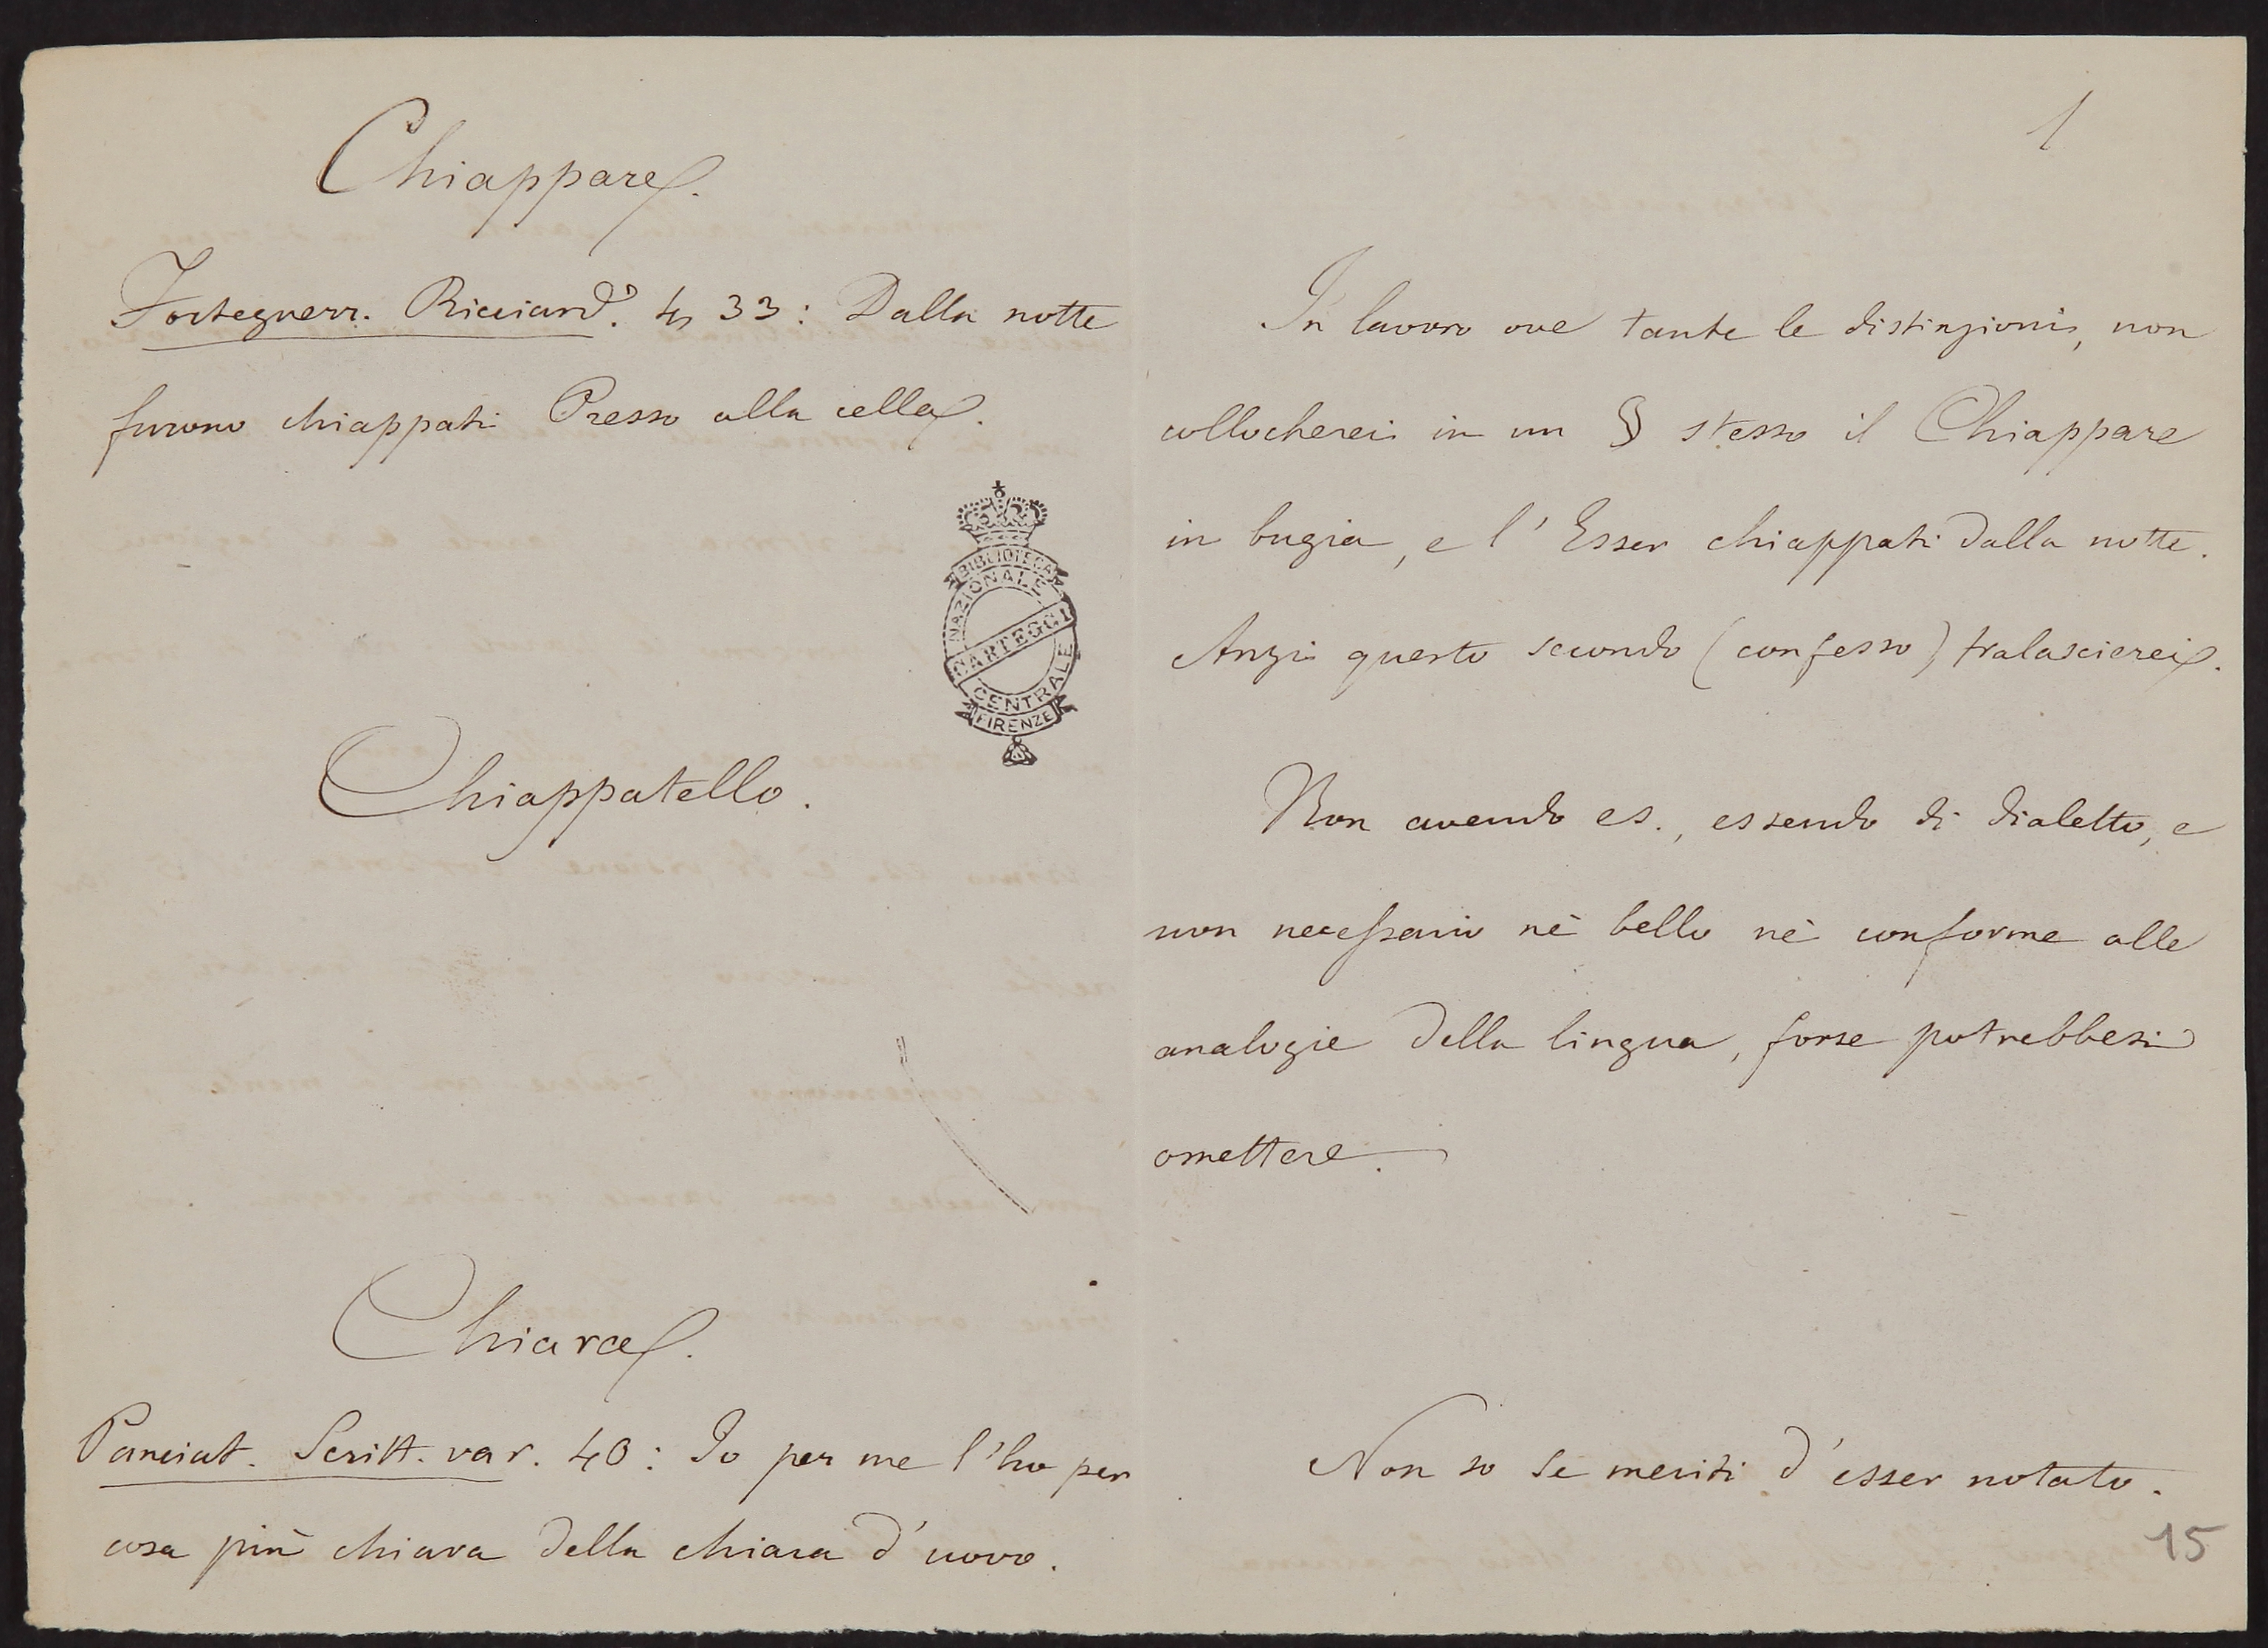 Chiappare.
Forteguerr. Ricciard. 4, 33: Dalla notte
furono chiappati Presso alla cella.
BIBLIOTECA
NAZIONALE
CARTEGGI
CENTRALE
FIRENZE
Chiappatello.
Chiara.
Panciat. Scritt. var. 40: Io per me l'ho per
cosa più chiara della chiara d'uovo.
1
In lavoro ove tante le distinzioni, non
collocherei in un § stesso il Chiappare
in bugia, e l'Esser chiappati dalla notte.
Anzi questo secondo (confesso) tralascierei.
Non avendo es., essendo di dialetto, e
non necessario nè bello nè conforme alle
analogie della lingua, forse potrebbesi
omettere.
Non so se meriti d'esser notato.
15